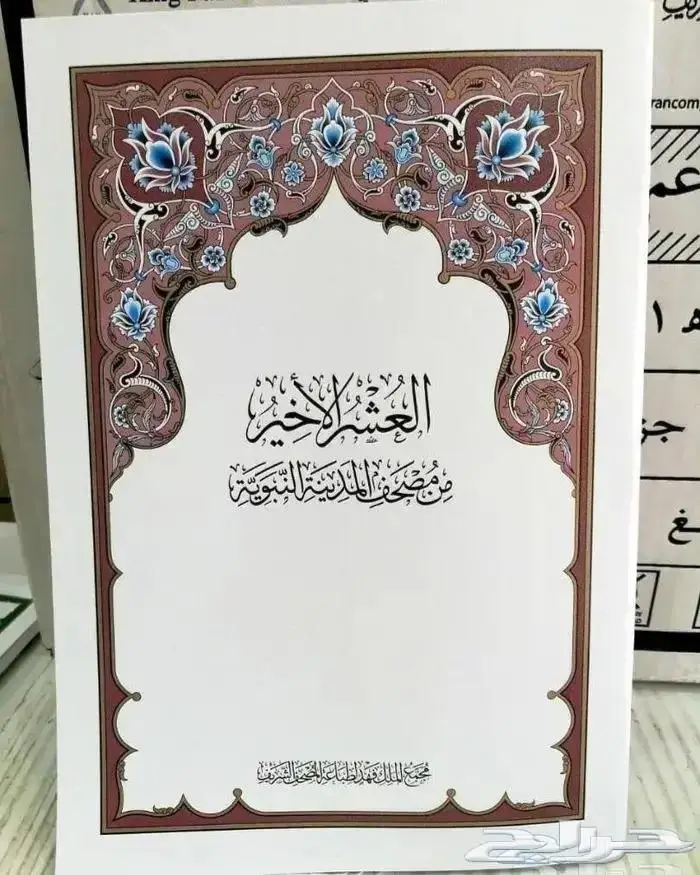 العُشْرُ الأَخِيرُ
مِن مُصْحَفِ المَدِينَةِ النَّبَوِيَّةِ
مُجَمَّعُ المَلِكِ فَهْدٍ لِطِبَاعَةِ المُصْحَفِ الشَّرِيفِ
حراج